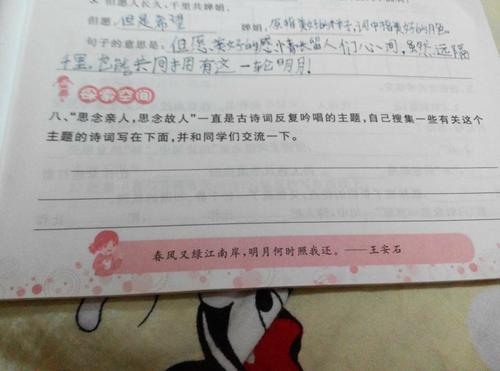 但愿人长久，千里共婵娟。
但愿：但是希望 婵娟：原指美好的样子，词中指美好的月色
句子的意思是：但愿美好的感情长留人们心间，虽然远隔
千里，也能共同拥有这一轮明月！
空间
八、“思念亲人，思念故人”一直是古诗词反复吟唱的主题，自己搜集一些有关这个
主题的诗词写在下面，并和同学们交流一下。
春风又绿江南岸，明月何时照我还。——王安石